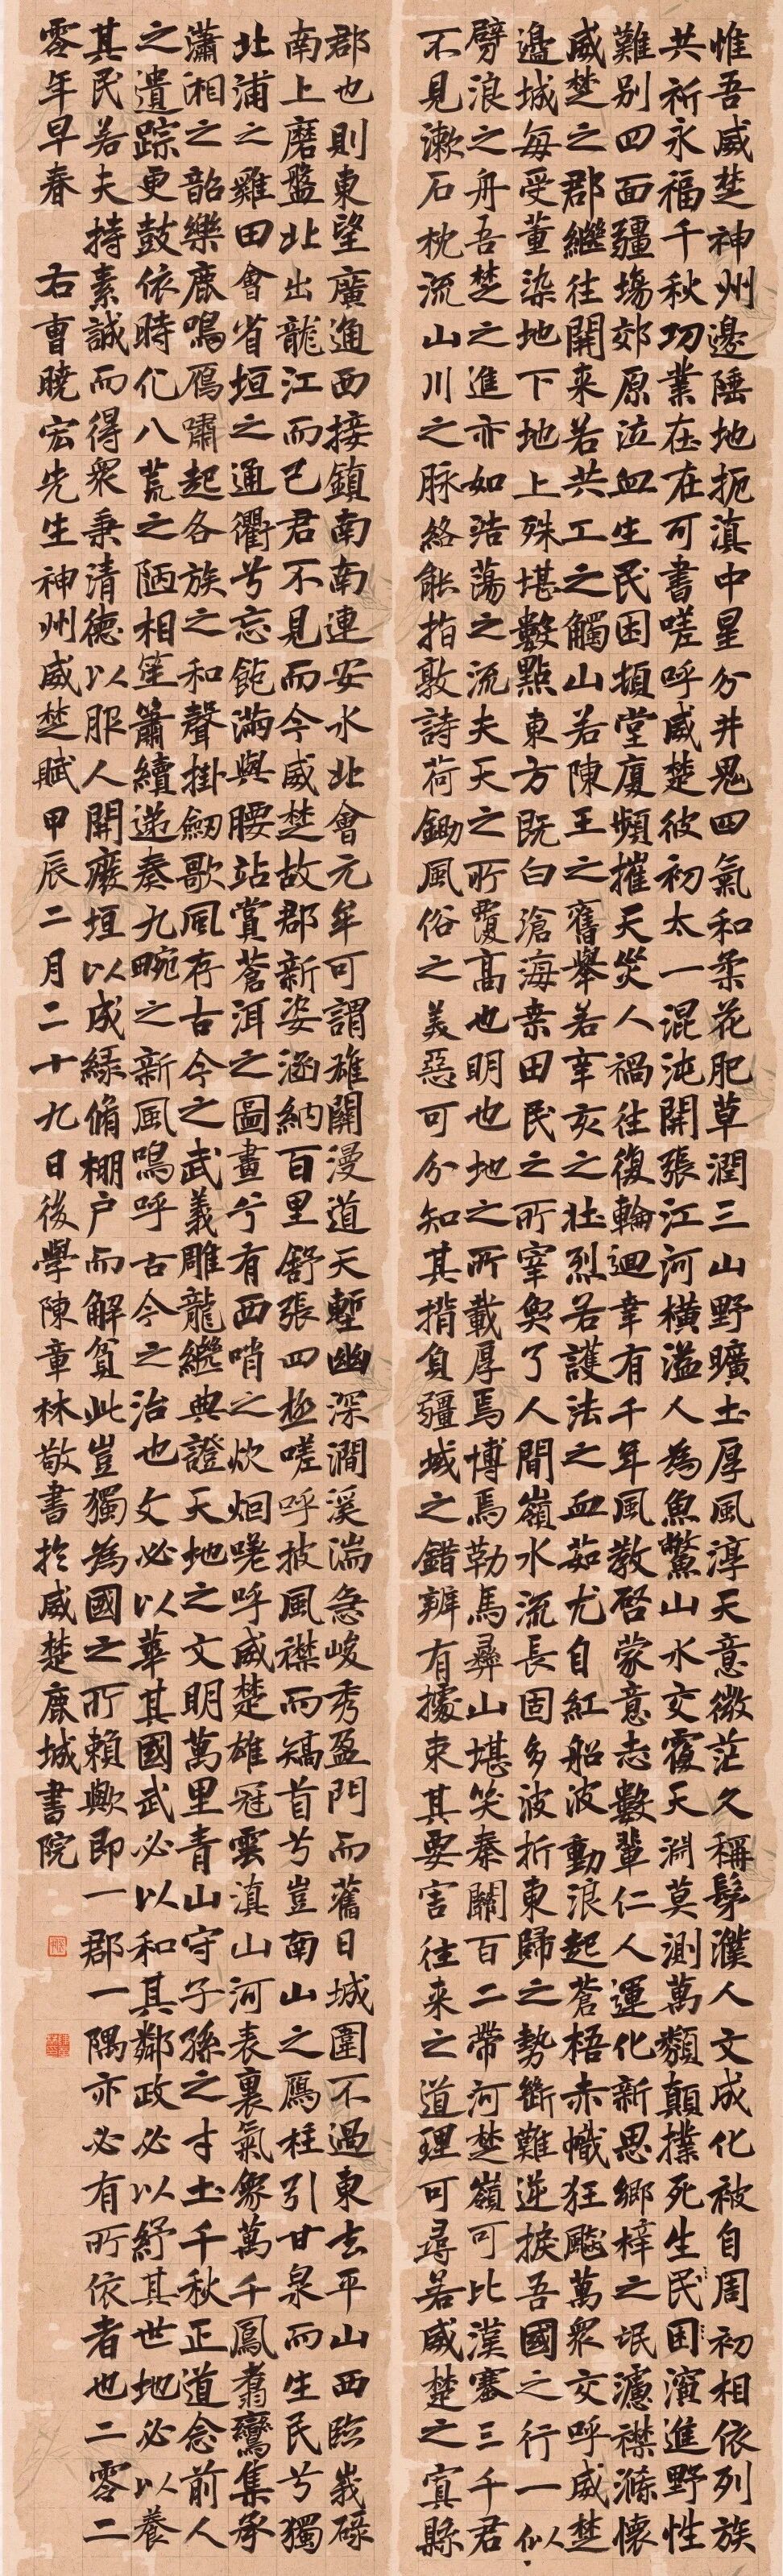 惟吾威楚神州邊陲地扼滇中星分井鬼四氣和柔花肥草潤三山野曠土厚風淳天意微茫久稱髳濮人文成化被自周初相依列族
共祈永福千秋功業在在可書嗟呼威楚彼初太一混沌開張江河橫溢人為魚鱉山水交覆天淵莫測萬類顛撲死生民困演進野性
難別四面疆場郊原泣血生民困頓堂廈頻摧天災人禍往復輪迴幸有千年風教啓蒙意志數輩仁人運化新思鄉梓之氓濾襟滌懷
威楚之郡繼往開来若共工之觸山若陳王之舊舉若辛亥之壯烈若護法之血茹尤自紅船波動浪起蒼梧赤幟狂飈萬眾交呼威楚
邊城每受董染地下地上殊堪數點東方既白滄海桒田民之所宰奐了人間嶺水流長固多波折東歸之勢斷難逆挨吾國之行一似
劈浪之舟吾楚之進亦如浩蕩之流夫天之所覆高也明也地之所載厚焉博焉勒馬彝山堪笑秦關百二帶河楚嶺可比漢塞三千君
不見漱石枕流山川之脉絡能指敦詩荷鋤風俗之美惡可分知其揹負疆域之錯辨有據束其要害往来之道理可尋若威楚之寘縣
郡也則東望廣通西接鎮南南連安水北會元牟可謂雄關漫道天塹幽深澗溪湍急峻秀盈門而舊日城圍不過東去平山西臨峩碌
南上磨盤北出龍江而已君不見而今威楚故郡新姿涵納百里舒張四極嗟呼披風襟而矯首兮豈南山之鴈柱引甘泉而生民兮獨
北浦之雞田會省垣之通衢兮忘飽滿與腰站賞蒼洱之圖畫兮有西哨之炊烟嗟呼威楚雄冠雲滇山河表裏氣象萬千鳳翥鸞集承
瀟湘之韶樂鹿鳴鴈嘯起各族之和聲掛劒歌風存古今之武義雕龍繼典證天地之文明萬里青山守子孫之寸土千秋正道念前人
之遺踪更鼓依時化八荒之陋相笙簫續递奏九畹之新風嗚呼古今之治也文必以華其國武必以和其鄰政必以紓其世地必以養
其民若夫持素誠而得衆秉清德以服人開廢垣以成緑脩棚户而解貧此豈獨為國之所賴歟即一郡一隅亦必有所依者也二零二
零年早春　右曹曉宏先生神州威楚賦甲辰二月二十九日後學陳章林敬書於威楚鹿城書院